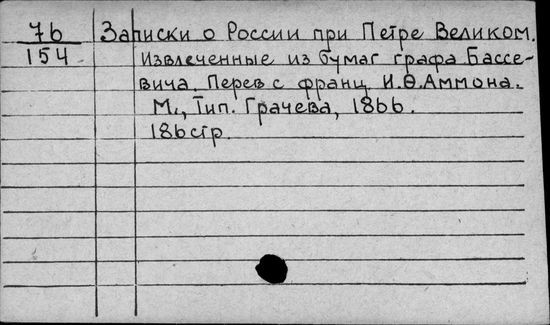 76 Записки о России при Петре Великом.
154 Извлеченные из бумаг графа Бассе-
вича. Перев с франц. И.Ѳ.Аммона.
М., Тип. Грачева, 1866.
186стр.